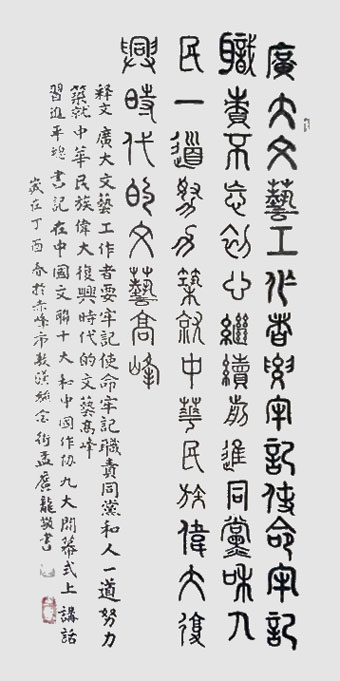 廣大文藝工作者要牢記使命牢記
職責不忘初心繼續前進同黨和人
民一道努力築就中華民族偉大復
興時代的文藝高峰
释文 廣大文藝工作者要牢記使命牢記職責同黨和人一道努力
築就中華民族偉大復興時代的文藝高峰
習進平總書記在中國文聯十大和中國作协九大開幕式上講話
歲在丁酉春於赤峰市敖漢 孟廣龍敬書